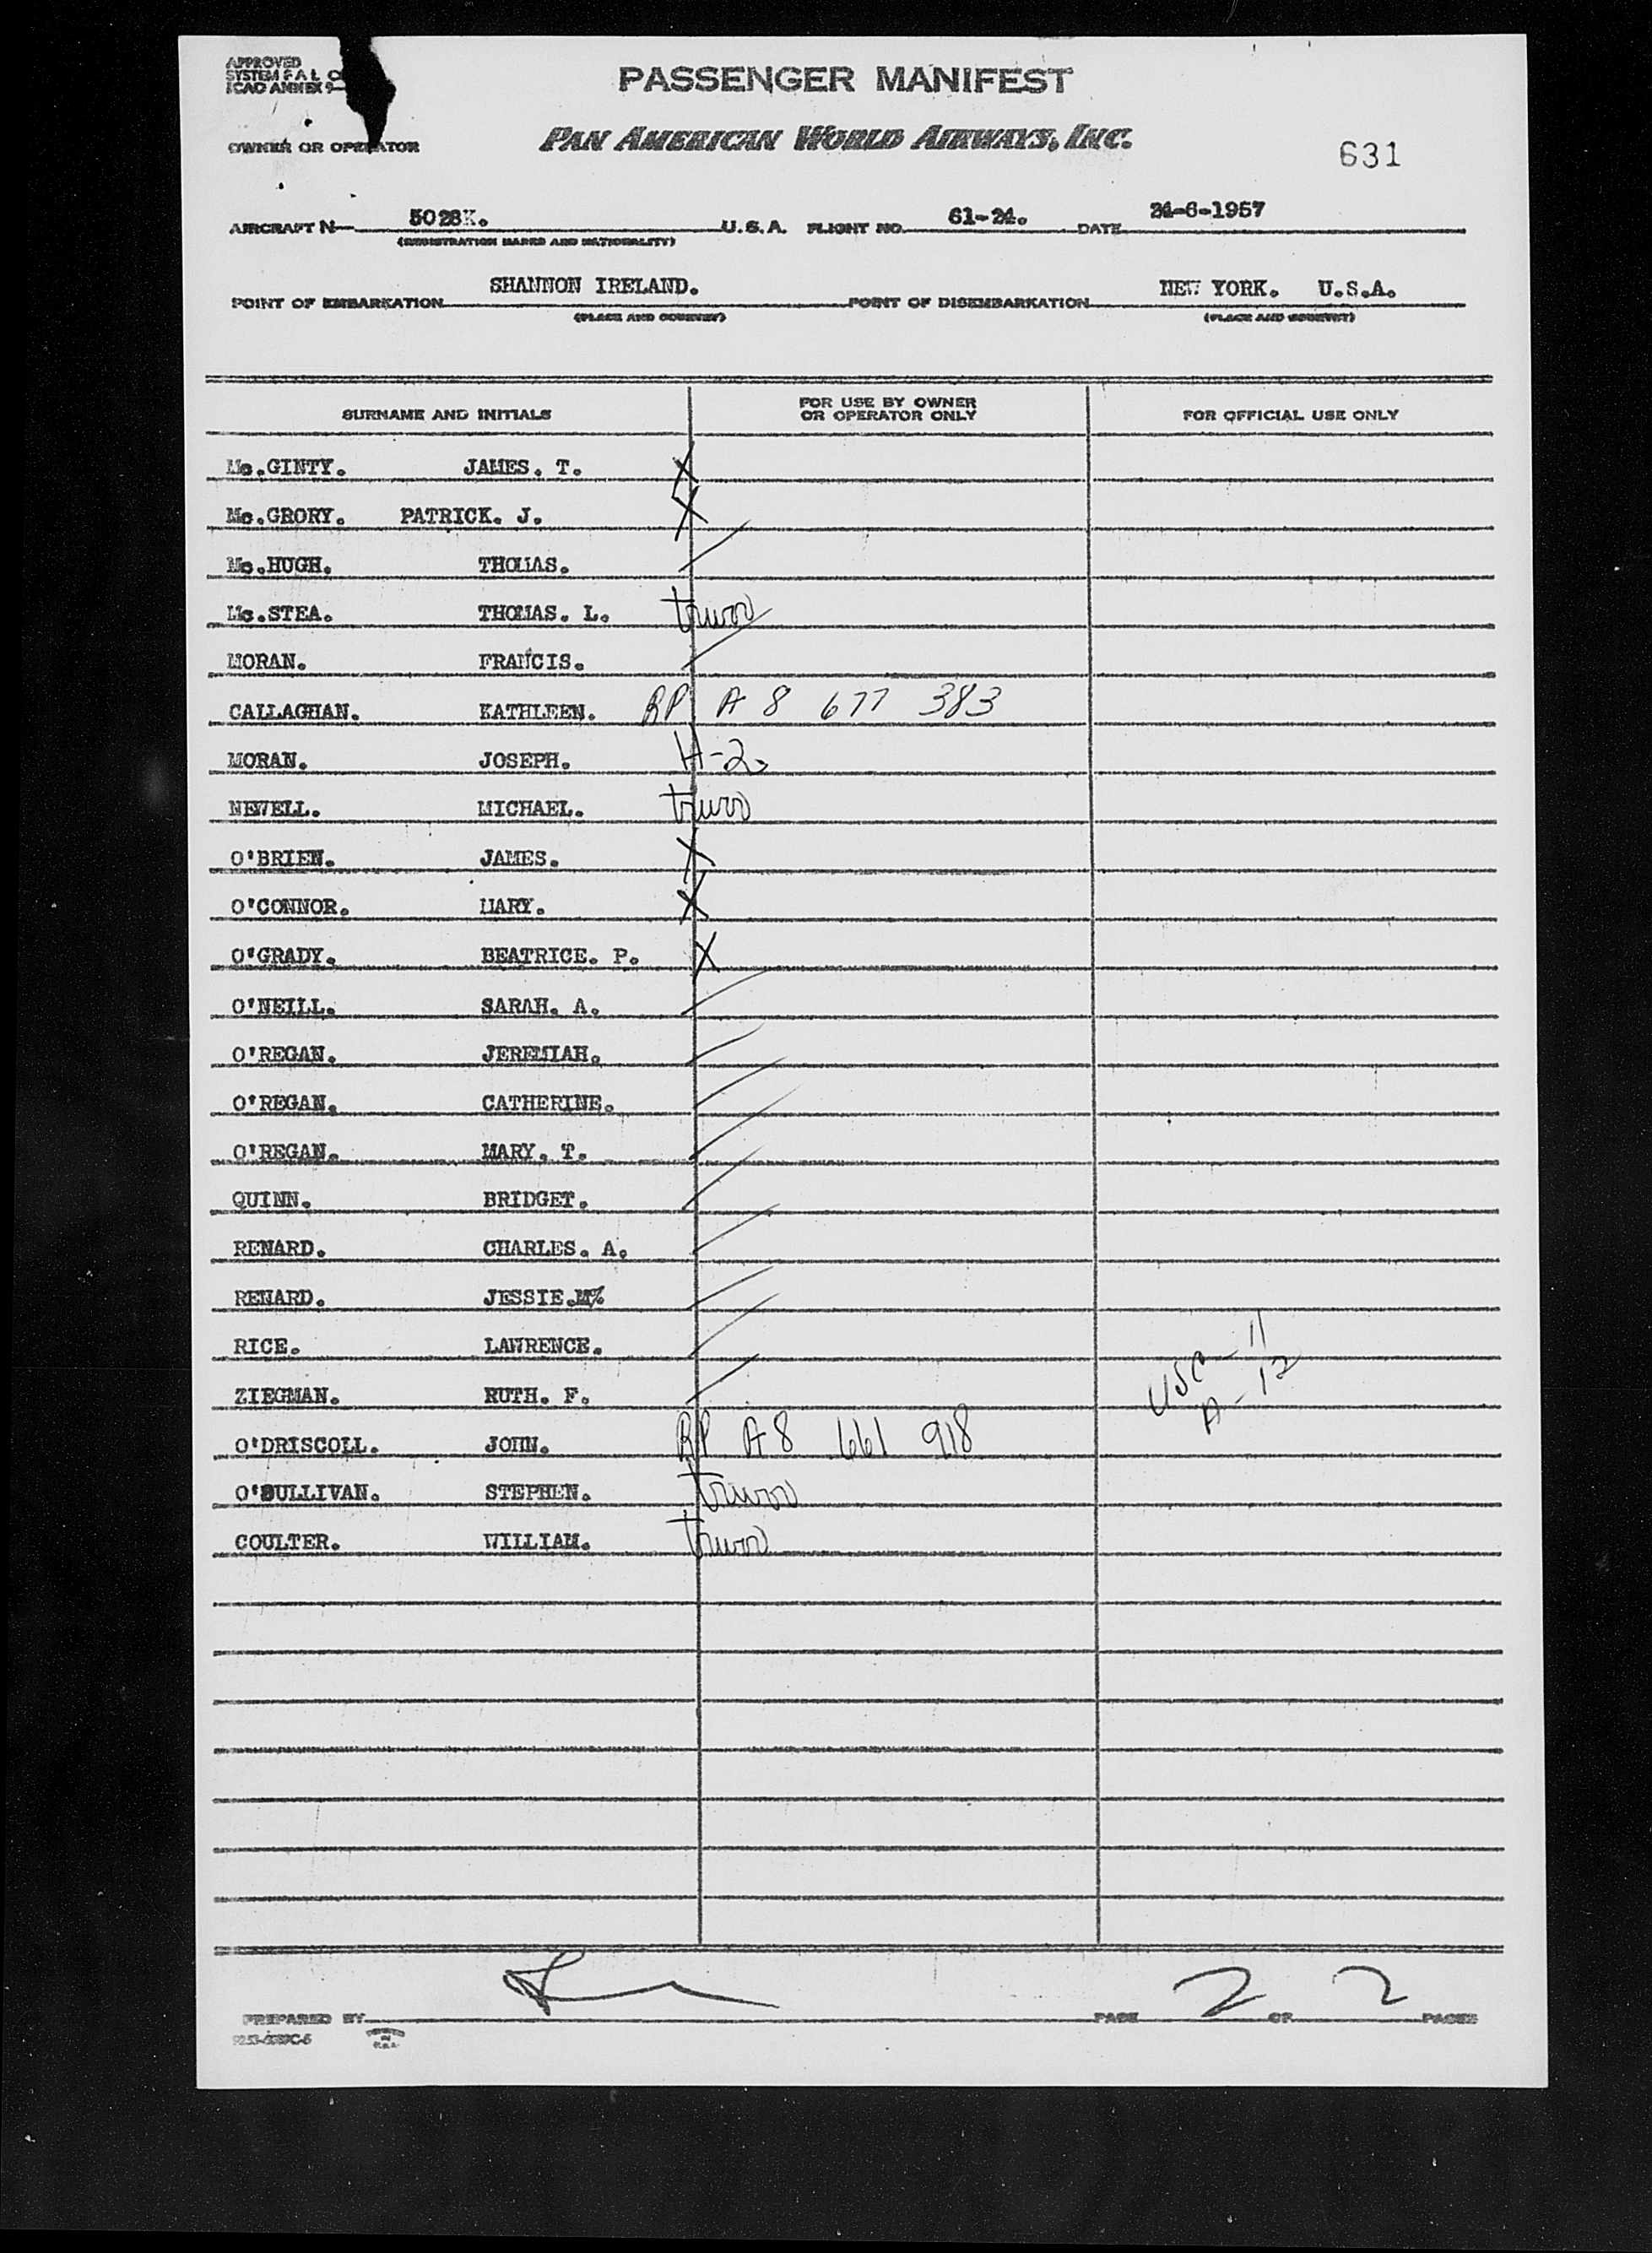 APPROVED
SYSTEM F A L
ICAO ANNEX 9
PASSENGER MANIFEST
OWNER OR OPERATOR PAN AMERICAN WORLD AIRWAYS, INC.
631
AIRCRAFT N— 5028K. U.S.A. FLIGHT NO. 61-24. DATE 24-6-1957
(REGISTRATION MARKS AND NATIONALITY)
POINT OF EMBARKATION SHANNON IRELAND. POINT OF DISEMBARKATION NEW YORK. U.S.A.
(PLACE AND COUNTRY) (PLACE AND COUNTRY)
SURNAME AND INITIALS FOR USE BY OWNER OR OPERATOR ONLY FOR OFFICIAL USE ONLY
Mc.GINTY. JAMES. T. X
Mc.GRORY. PATRICK. J. X
Mc.HUGH. THOMAS.
Mc.STEA. THOMAS. L.
MORAN. FRANCIS.
CALLAGHAN. KATHLEEN. RP A8 677 383
MORAN. JOSEPH. H-2
NEWELL. MICHAEL.
O'BRIEN. JAMES. X
O'CONNOR. MARY. X
O'GRADY. BEATRICE. P. X
O'NEILL. SARAH. A.
O'REGAN. JEREMIAH.
O'REGAN. CATHERINE.
O'REGAN. MARY. T.
QUINN. BRIDGET.
RENARD. CHARLES. A.
RENARD. JESSIE.M%
RICE. LAWRENCE.
USC - 11
A - 12
ZIEGMAN. RUTH. F.
O'DRISCOLL. JOHN. RP A8 661 918
O'SULLIVAN. STEPHEN.
COULTER. WILLIAM.
PREPARED BY PAGE 2 OF 2 PAGES
PRINTED IN U.S.A.